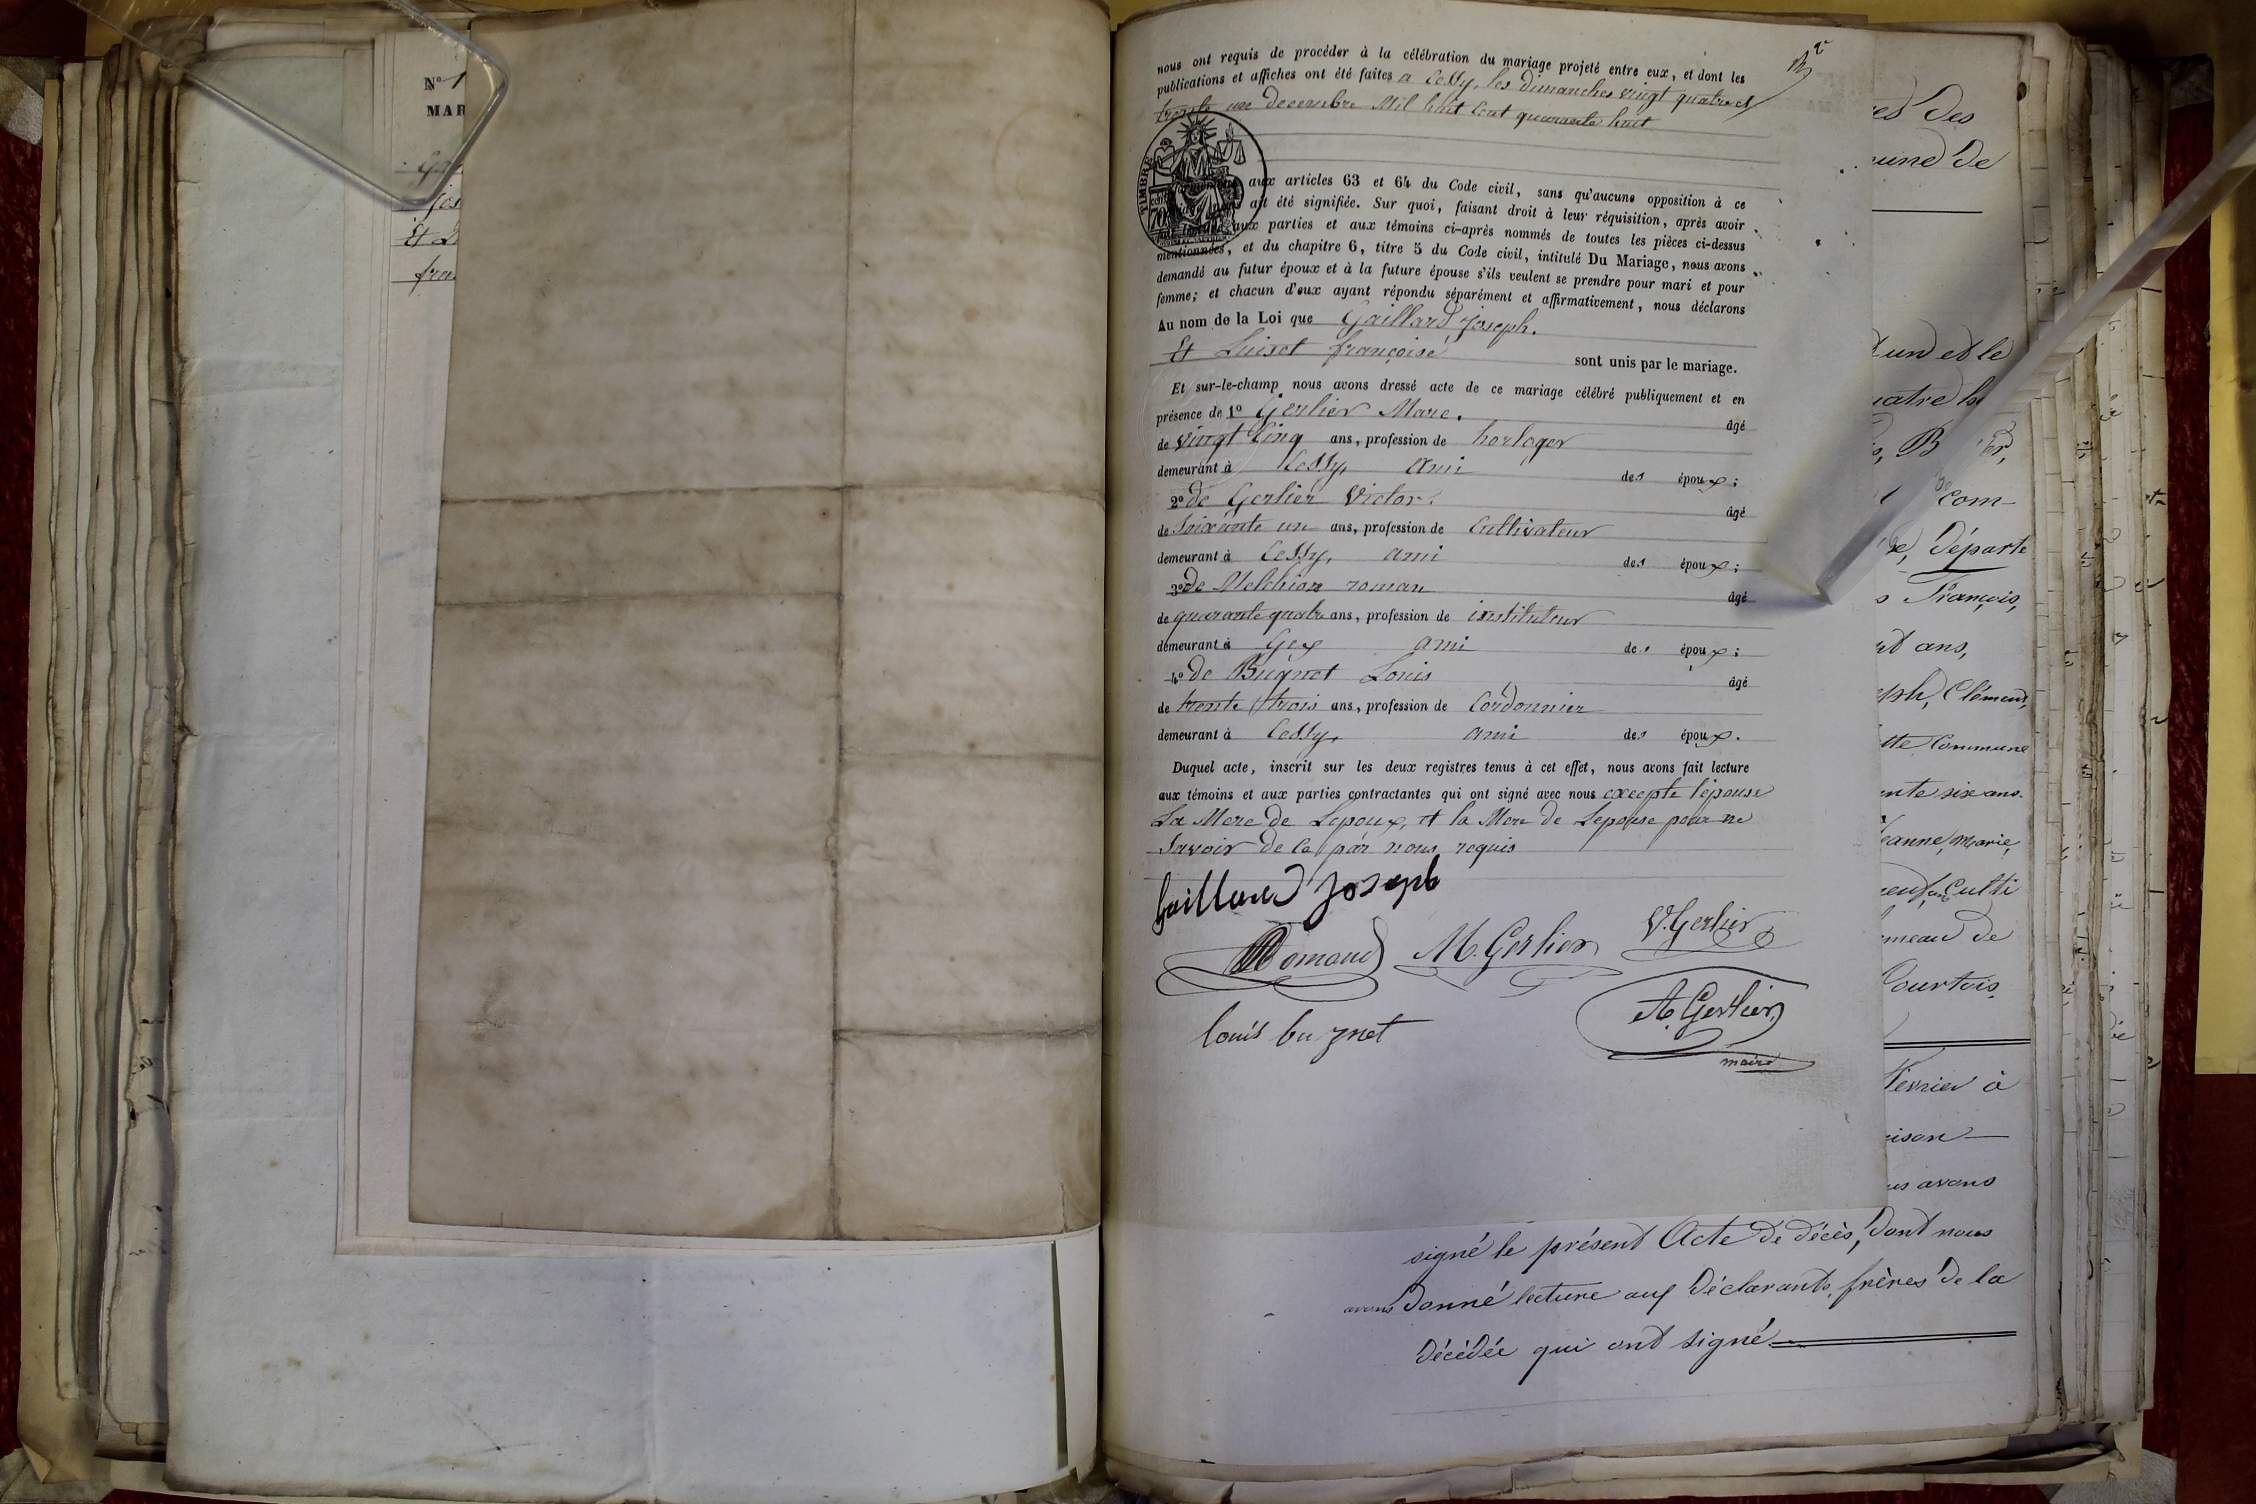 N° 1
MAR
Et
nous ont requis de procéder à la célébration du mariage projeté entre eux, et dont les
publications et affiches ont été faites a Cessy, les dimanches vingt quatre et
trente un decembre Mil huit Cent quarante huit
TIMBRE
aux articles 63 et 64 du Code civil, sans qu'aucune opposition à ce
ait été signifiée. Sur quoi, faisant droit à leur réquisition, après avoir
aux parties et aux témoins ci-après nommés de toutes les pièces ci-dessus
mentionnées, et du chapitre 6, titre 5 du Code civil, intitulé Du Mariage, nous avons
demandé au futur époux et à la future épouse s'ils veulent se prendre pour mari et pour
femme; et chacun d'eux ayant répondu séparément et affirmativement, nous déclarons
Au nom de la Loi que Gaillard Joseph.
Et Luiset françoise sont unis par le mariage.
Et sur-le-champ nous avons dressé acte de ce mariage célébré publiquement et en
présence de 1° Gerlier Marc. âgé
de vingt Cinq ans, profession de horloger
demeurant à Cessy, ami des époux;
2° de Gerlier Victor. âgé
de Soixante un ans, profession de Cultivateur
demeurant à Cessy, ami des époux;
3° de Melchior roman âgé
de quarante quatre ans, profession de instituteur
demeurant à Gex ami des époux;
4° de Bugnet Louis âgé
de trente trois ans, profession de Cordonnier
demeurant à Cessy, ami des époux.
Duquel acte, inscrit sur les deux registres tenus à cet effet, nous avons fait lecture
aux témoins et aux parties contractantes qui ont signé avec nous excepte lepouse
La Mere de Lepoux, et la Mere de Lepouse pour ne
Savoir de Ce par nous requis
Gaillard Joseph
Romand M. Gerlier V. Gerlier
louis bugnet A. Gerlier
maire
es des
une de
un et le
atre h
com
Départe
François,
ans,
Clément,
tte Commune
nte six ans.
Jeanne, Marie,
Culti
meau de
Courtois,
février à
ison
avons
signé le présent Acte de décès, dont nous
avons donné lecture aux déclarants, frères de la
décédée qui ont signé